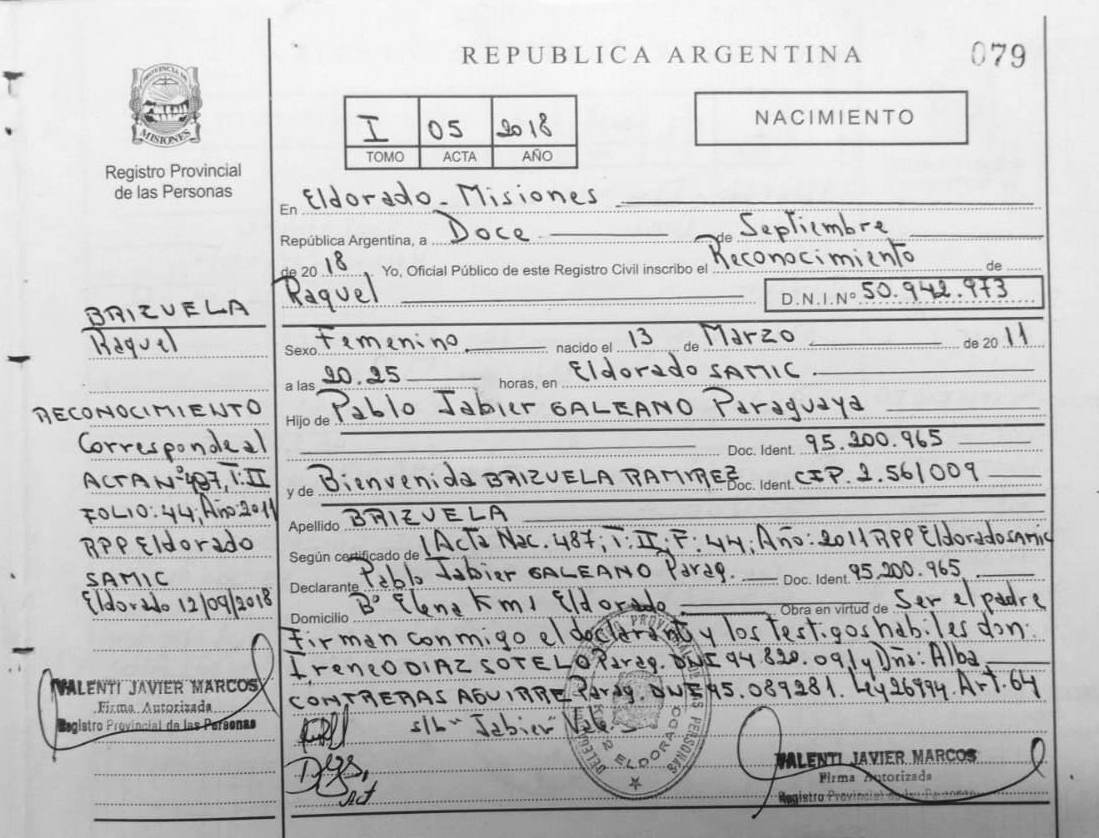 REPUBLICA ARGENTINA
079
PROVINCIA DE
MISIONES
Registro Provincial
de las Personas
I 05 2018
TOMO ACTA AÑO
NACIMIENTO
En Eldorado - Misiones
República Argentina, a Doce de Septiembre
de 2018. Yo, Oficial Público de este Registro Civil inscribo el Reconocimiento de
Raquel D.N.I.Nº 50.942.973
Sexo Femenino nacido el 13 de Marzo de 2011
a las 20.25 horas, en Eldorado SAMIC
Hijo de Pablo Jabier GALEANO Paraguaya
Doc. Ident. 95.200.965
y de Bienvenida BRIZUELA RAMIREZ Doc. Ident. CIP. 2.561009
Apellido BRIZUELA
Según certificado de Acta Nac. 487; T: II; F: 44; Año: 2011 RPP Eldorado SAMIC
Declarante Pablo Jabier GALEANO Parag. Doc. Ident. 95.200.965
Domicilio Bº Elena Km 1 Eldorado Obra en virtud de Ser el padre
Firman conmigo el declarante y los testigos habiles don:
Ireneo DIAZ SOTELO Parag. DNI 94.820.091 y Dña: Alba
CONTRERAS AGUIRRE Parag. DNI 95.089281. Ley 26994. Art. 64
s/b "Jabier" Vale
BRIZUELA
Raquel
RECONOCIMIENTO
Corresponde al
ACTA Nº 487, T: II
FOLIO: 44; Año: 2011
RPP Eldorado
SAMIC
Eldorado 12/09/2018
VALENTI JAVIER MARCOS
Firma Autorizada
Registro Provincial de las Personas
ELDORADO
VALENTI JAVIER MARCOS
Firma Autorizada
Registro Provincial de las Personas